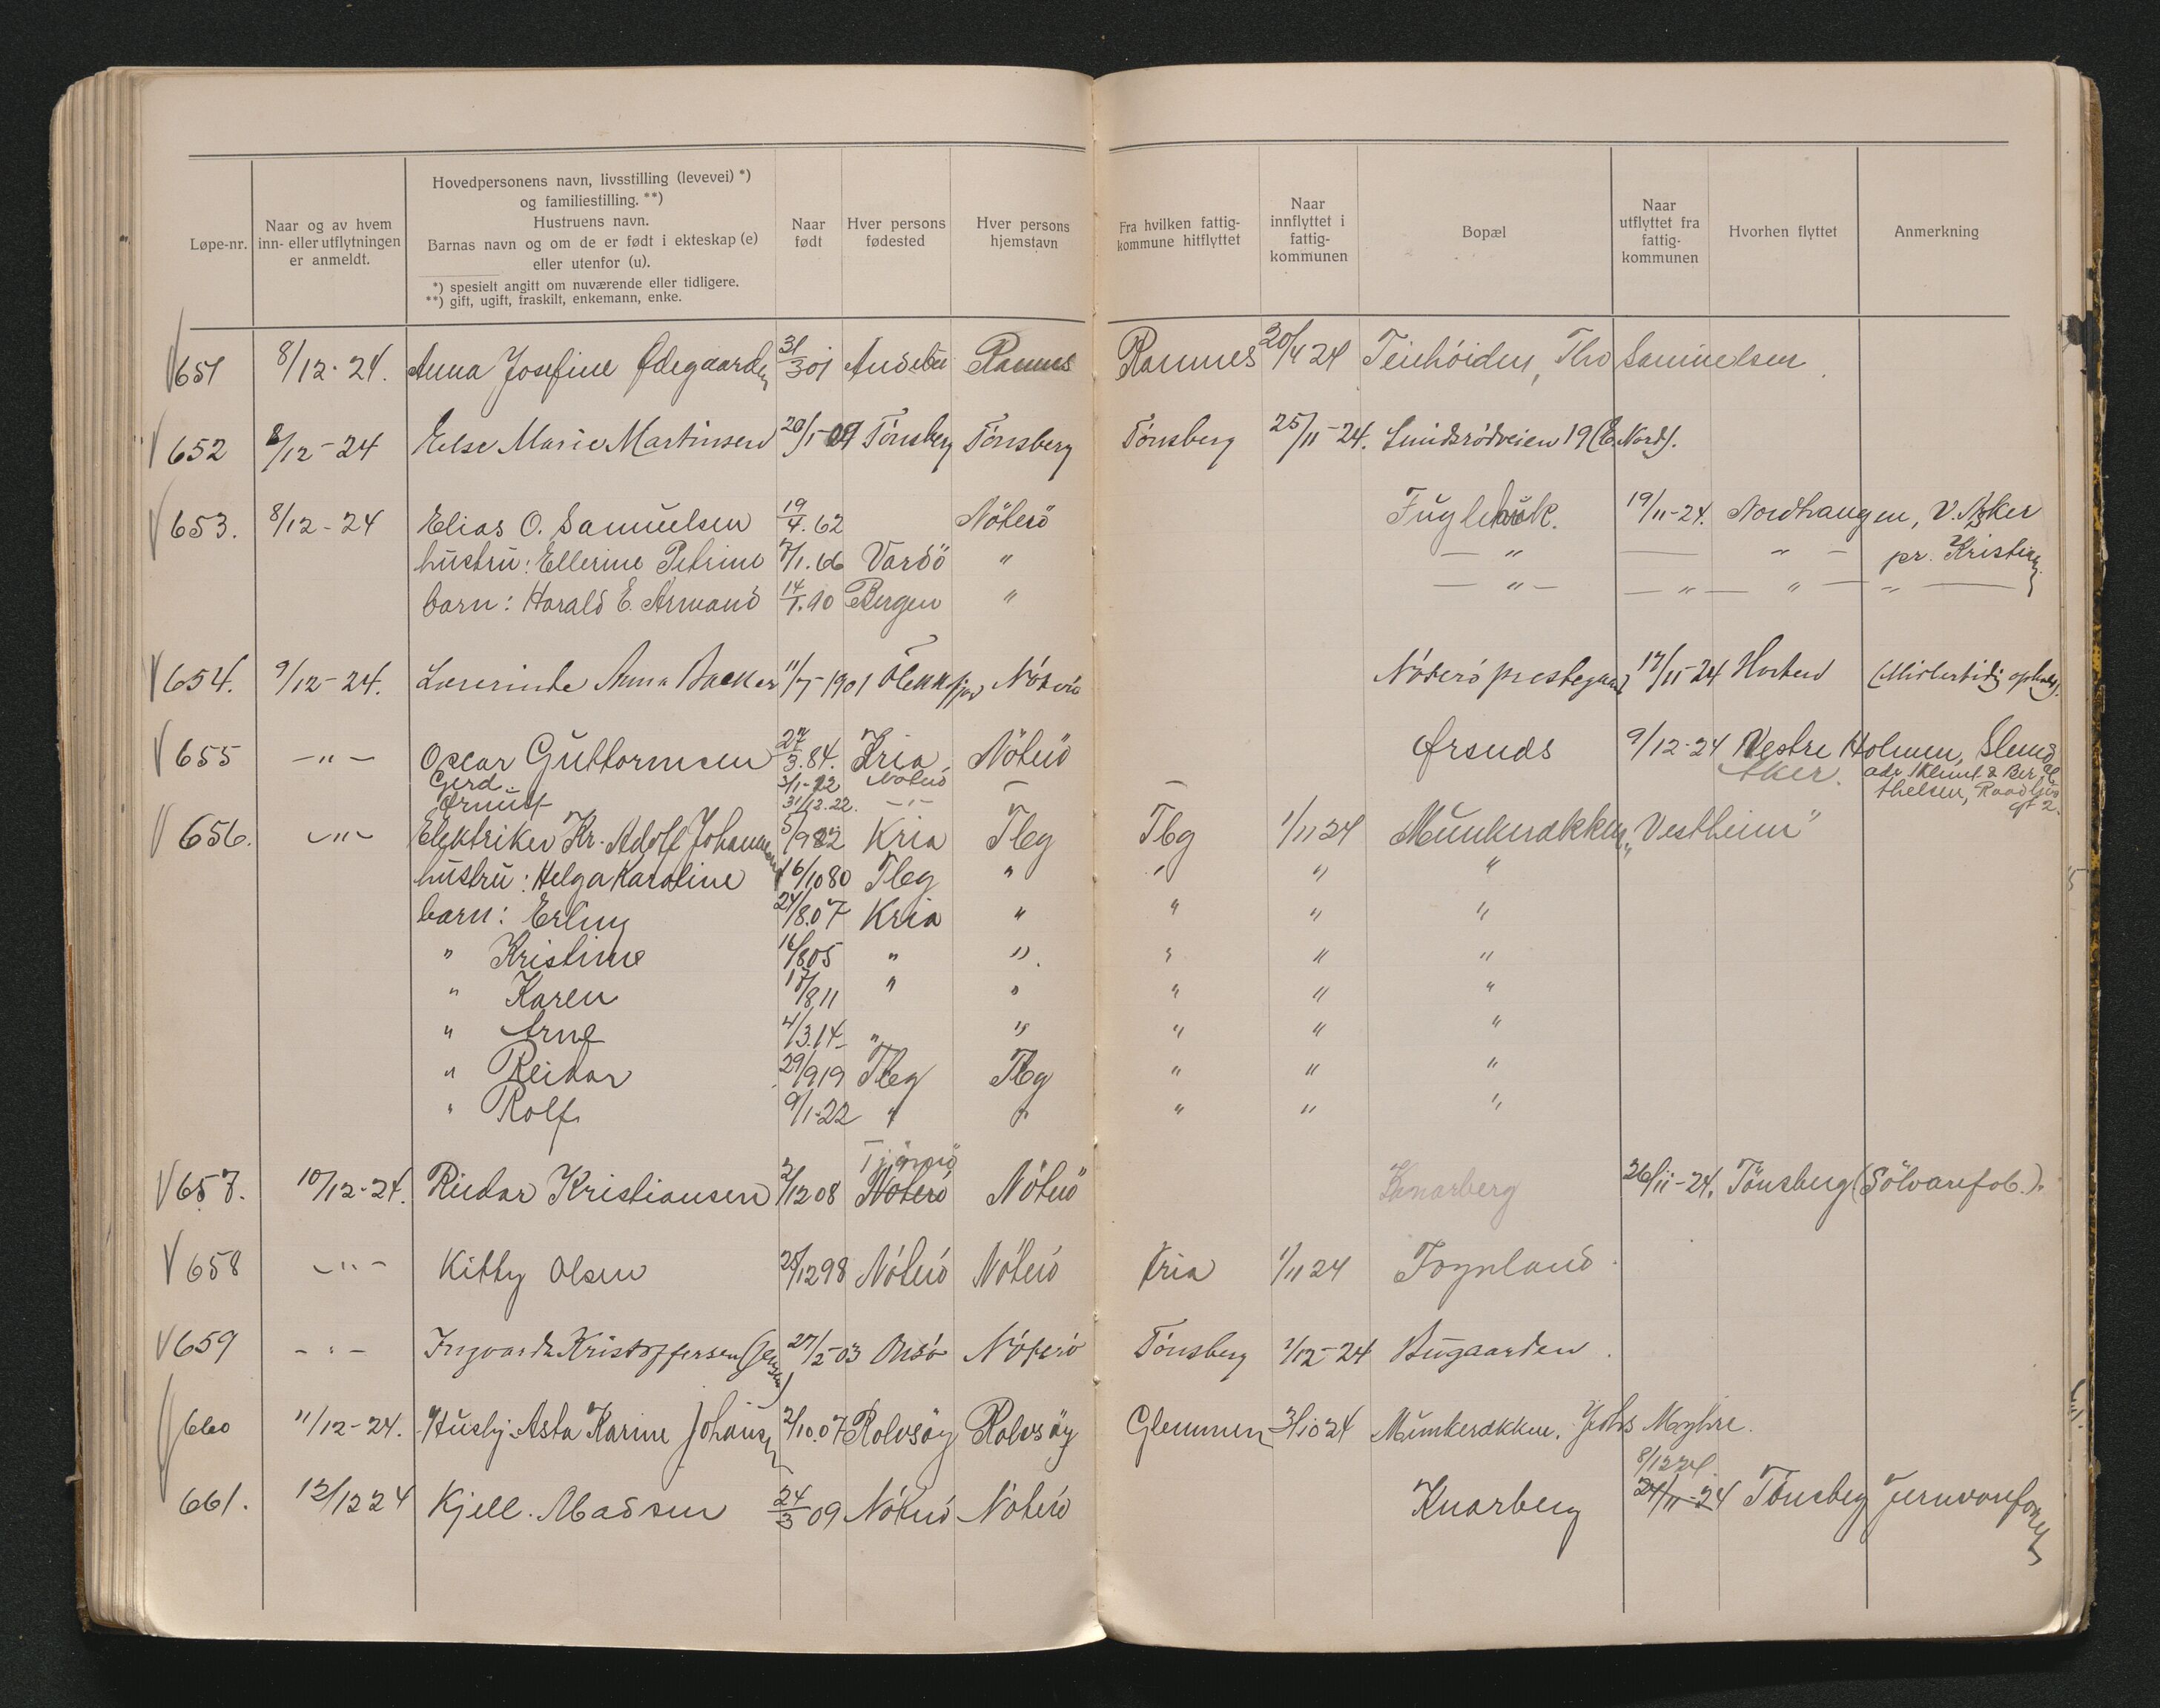 Løpe-nr.
Naar og av hvem inn- eller utflytningen er anmeldt.
Hovedpersonens navn, livsstilling (levevei) *) og familiestilling. **) Hustruens navn. Barnas navn og om de er født i ekteskap (e) eller utenfor (u).
*) spesielt angitt om nuværende eller tidligere.
**) gift, ugift, fraskilt, enkemann, enke.
Naar født
Hver persons fødested
Hver persons hjemstavn
Fra hvilken fattig-kommune hitflyttet
Naar innflyttet i fattig-kommunen
Bopæl
Naar utflyttet fra fattig-kommunen
Hvorhen flyttet
Anmerkning
651 8/12-24. Anna Josefine Ødegaarden 31/3 01 Andebu Ramnes Ramnes 20/4 24 Teinhöiden, Tho Samuelsen
652 8/12-24 Else Marie Martinsen 20/1-09 Tönsberg Tönsberg Tönsberg 25/11-24. Smidsrödveien 19 (E. Nord).
653. 8/12-24 Elias O. Samuelsen 19/4.62 Nöterö Fuglehuk. 19/11-24. Nordhaugen, V. Aker
hustru: Ellerine Petrine 7/1.66 Vardö " — " — — " — pr. Kristia
barn: Harald E. Armand 14/1.90 Bergen " — " — — " — " — " —
654. 9/12-24. Lærerinde Anna Backer 11/7-1901 Flekkefjord Nöterö Nöterö prestegaard 17/11-24 Horten (Midlertidig ophold).
655 — " — Oscar Guttormsen 27/3.84. Kria Nöterö Örsnes 9/12-24 Vestre Holmen, Slemd
Gerd 3/1-12 Nöterö — — Aker. adr. Klemt & Ber
Ørnulf 31/12.22. — " — thelsen, Raadhus gt 2.
656. — " — Elektriker Kr. Adolf Johannesen 5/9 82 Kria Tbg Tbg 1/11 24 Munkerækken "Vestheim"
hustru: Helga Karoline 16/10 80 Tbg " " " "
barn: Erling 24/8.07 Kria " " " "
" Kristine 16/8 05 " " " " "
" Karen 17/8 11 " " " " "
" Arne 4/3.14 " " " " "
" Reidar 29/9 19 Tbg Tbg " " "
" Rolf 9/1-22 " " " " "
Tjömö
657. 10/12-24. Reidar Kristiansen 2/12 08 Nöterö Nöterö Knarberg 26/11-24. Tönsberg (Sölvarefab.).
658 — " — Kitty Olsen 25/12 98 Nöterö Nöterö Kria 1/11 24 Föynland
659 — " — Ingvarda Kristoffersen 27/2-03 Onsö Nöterö Tönsberg 1/12-24 Bugaarden.
660 11/12-24. Husbj. Asta Karine Johansen 2/10.07 Rolvsöy Rolvsöy Glemmen 3/10 24 Munkerækken. Johs Myhre.
8/12 24.
661. 12/12 24 Kjell Madsen 24/3 09 Nöterö Nöterö Knarberg 24/11-24 Tönsberg Jernvareforr.